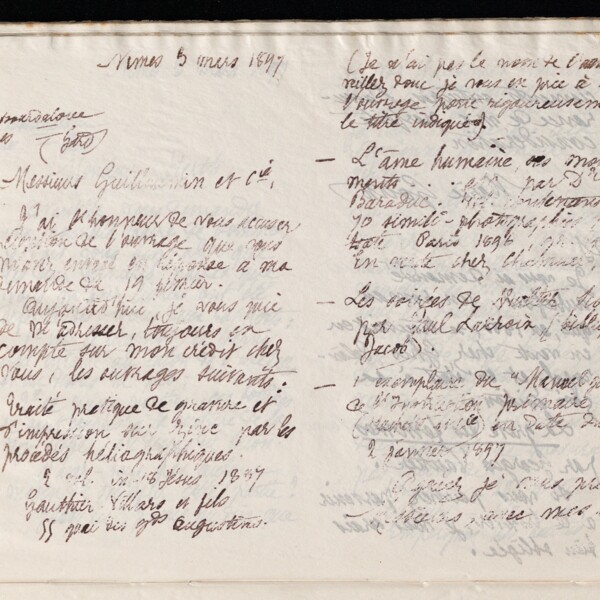 Nimes 3 mars 1897
(Gard)
Messieurs Guillaumin et Cie,
J'ai l'honneur de vous accuser
réception de l'ouvrage que vous
envoi en réponse à ma
demande du 19 février.
Aujourd'hui, je vous prie
de m'adresser, toujours en
compte sur mon crédit chez
vous, les ouvrages suivants :
Traité pratique de gravure et
d'impression sur zinc par les
procédés héliographiques.
2 vol. in-18 Jésus 1887
Gauthier Villars et fils
55 quai des gds Augustins.
(Je n'ai pas le nom de
veillez donc je vous en prie à
l'ouvrage porte rigoureusement
le titre indiqué).
— L'âme humaine, ses
par Dr
Baraduc.
70 simili-photographies
Paris 1896
En vente chez
— Les soirées de
par Paul Lacroix (
Jacob).
— 1 exemplaire du "Manuel
de l'Instruction primaire
en date du
2 janvier 1897
je vous
Messieurs, avec mes